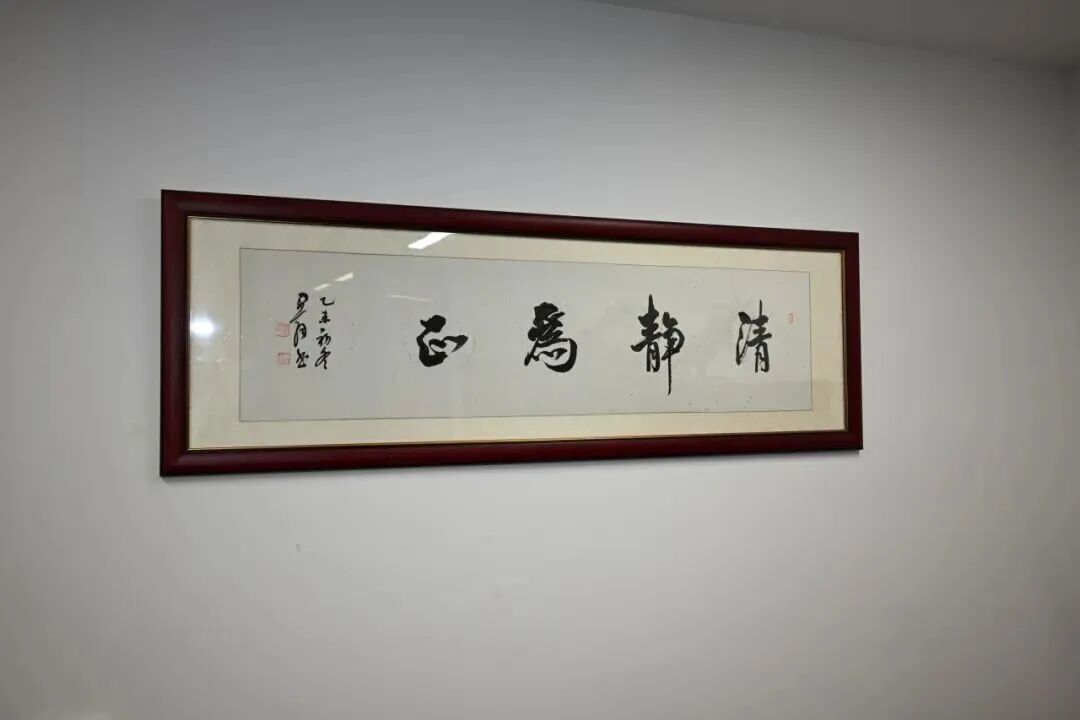 清靜為正
乙未初冬